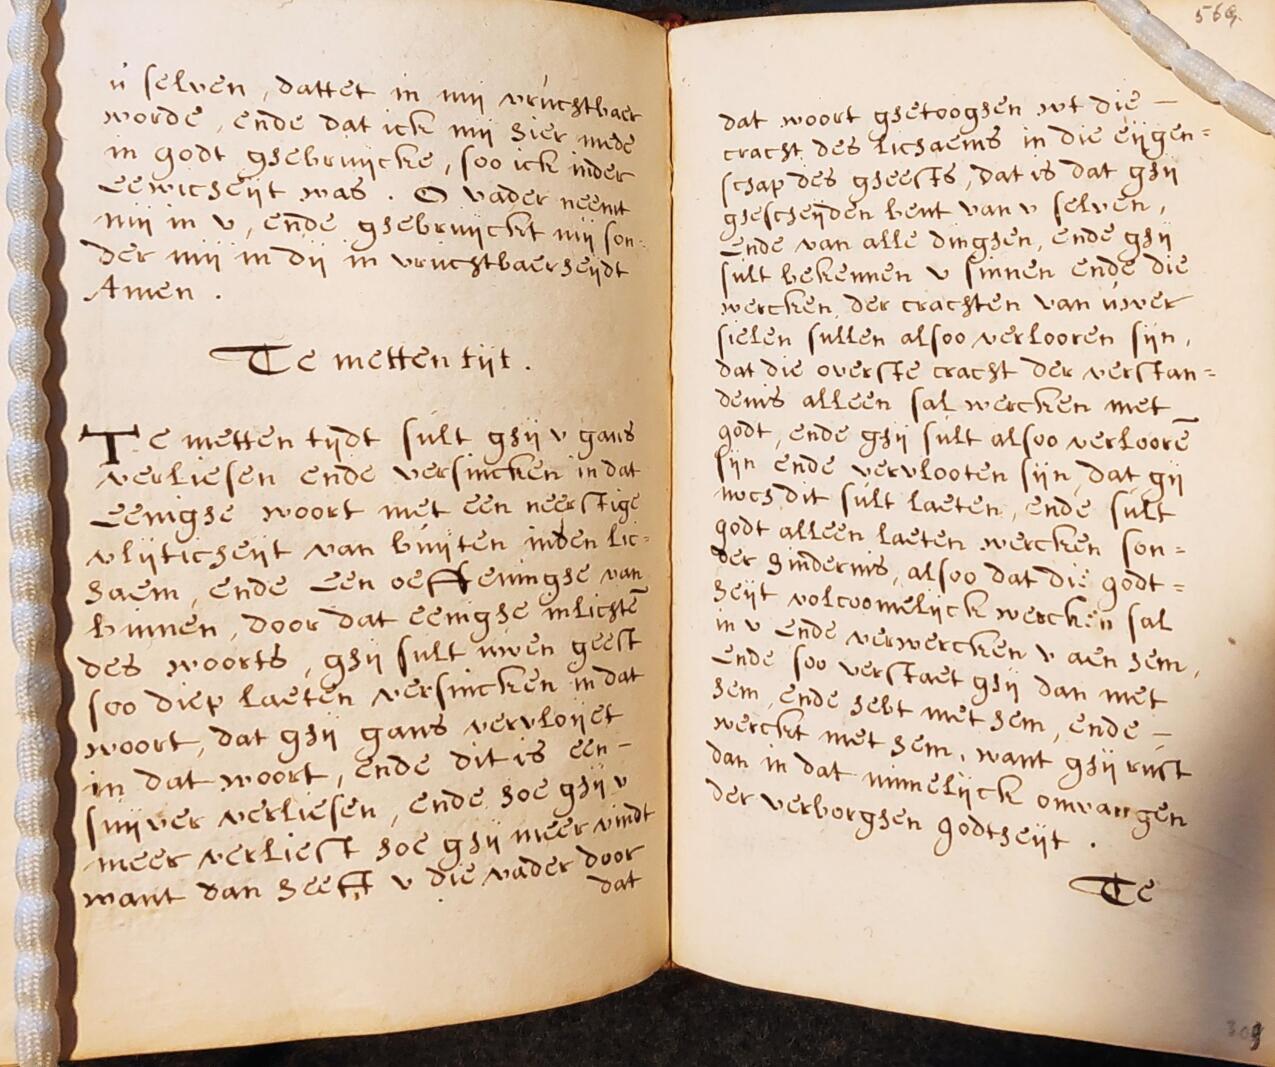 ú selven, dattet in mij vrúchtbaer
worde, ende dat ick mij hier mede
in godt ghebruijcke, soo ick inder
eewicheijt was. O vader neemt
mij in v, ende ghebruijckt mij son-
der mij in dij in vrúchtbaerheijdt
Amen.
Te metten tijt.
Te metten tijdt súlt ghij v gans
verliesen ende versincken in dat
eenighe woort met een neerstige
vlijticheijt van búijten inden lic-
haem, ende een oeffeninghe van
binnen, door dat eenighe inlichtē
des woorts, ghij súlt úwen geest
soo diep laeten versincken in dat
woort, dat ghij gans vervloijet
in dat woort, ende dit is een-
suijver verliesen, ende hoe ghij v
meer verliest hoe ghij meer vindt
want dan heefft v die vader door
dat
569.
dat woort ghetooghen wt die -
cracht des lichaems in die eijgen=
schap des gheests, dat is dat ghij
ghescheijden bent van v selven,
ende van alle dinghen, ende ghij
súlt bekennen v sinnen ende die
wercken der crachten van úwer
sielen sullen alsoo verlooren sijn,
dat die overste cracht der verstan=
denis alleen sal wercken met
godt, ende ghij súlt alsoo verloorē
sijn ende vervlooten sijn, dat gij
noch dit súlt laeten, ende súlt
godt alleen laeten wercken son=
der hindernis, alsoo dat die godt=
heijt volcoomelijck wercken sal
in v ende verwercken v aen hem,
ende soo verstaet ghij dan met
hem, ende hebt met hem, ende -
werckt met hem, want ghij rúst
dan in dat minnelijck omvangen
der verborghen godtheijt.
Te
309